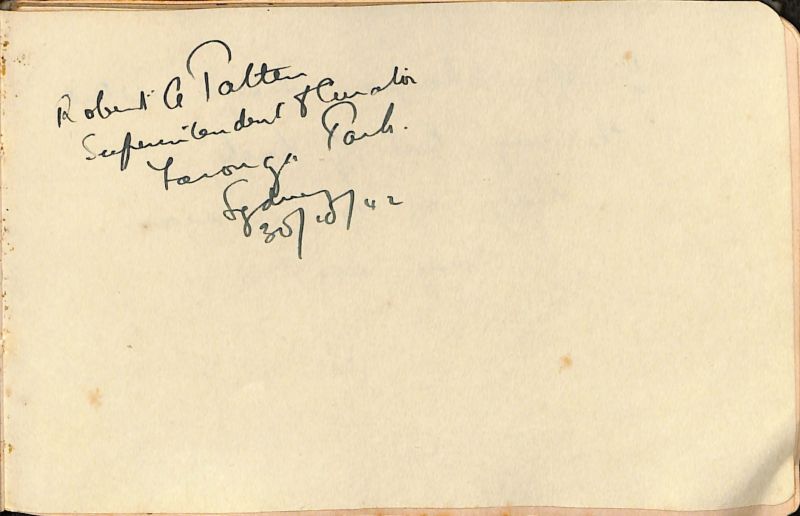 Robert A Patten
Superintendent & Curator
Taronga Park.
Sydney
30/10/42